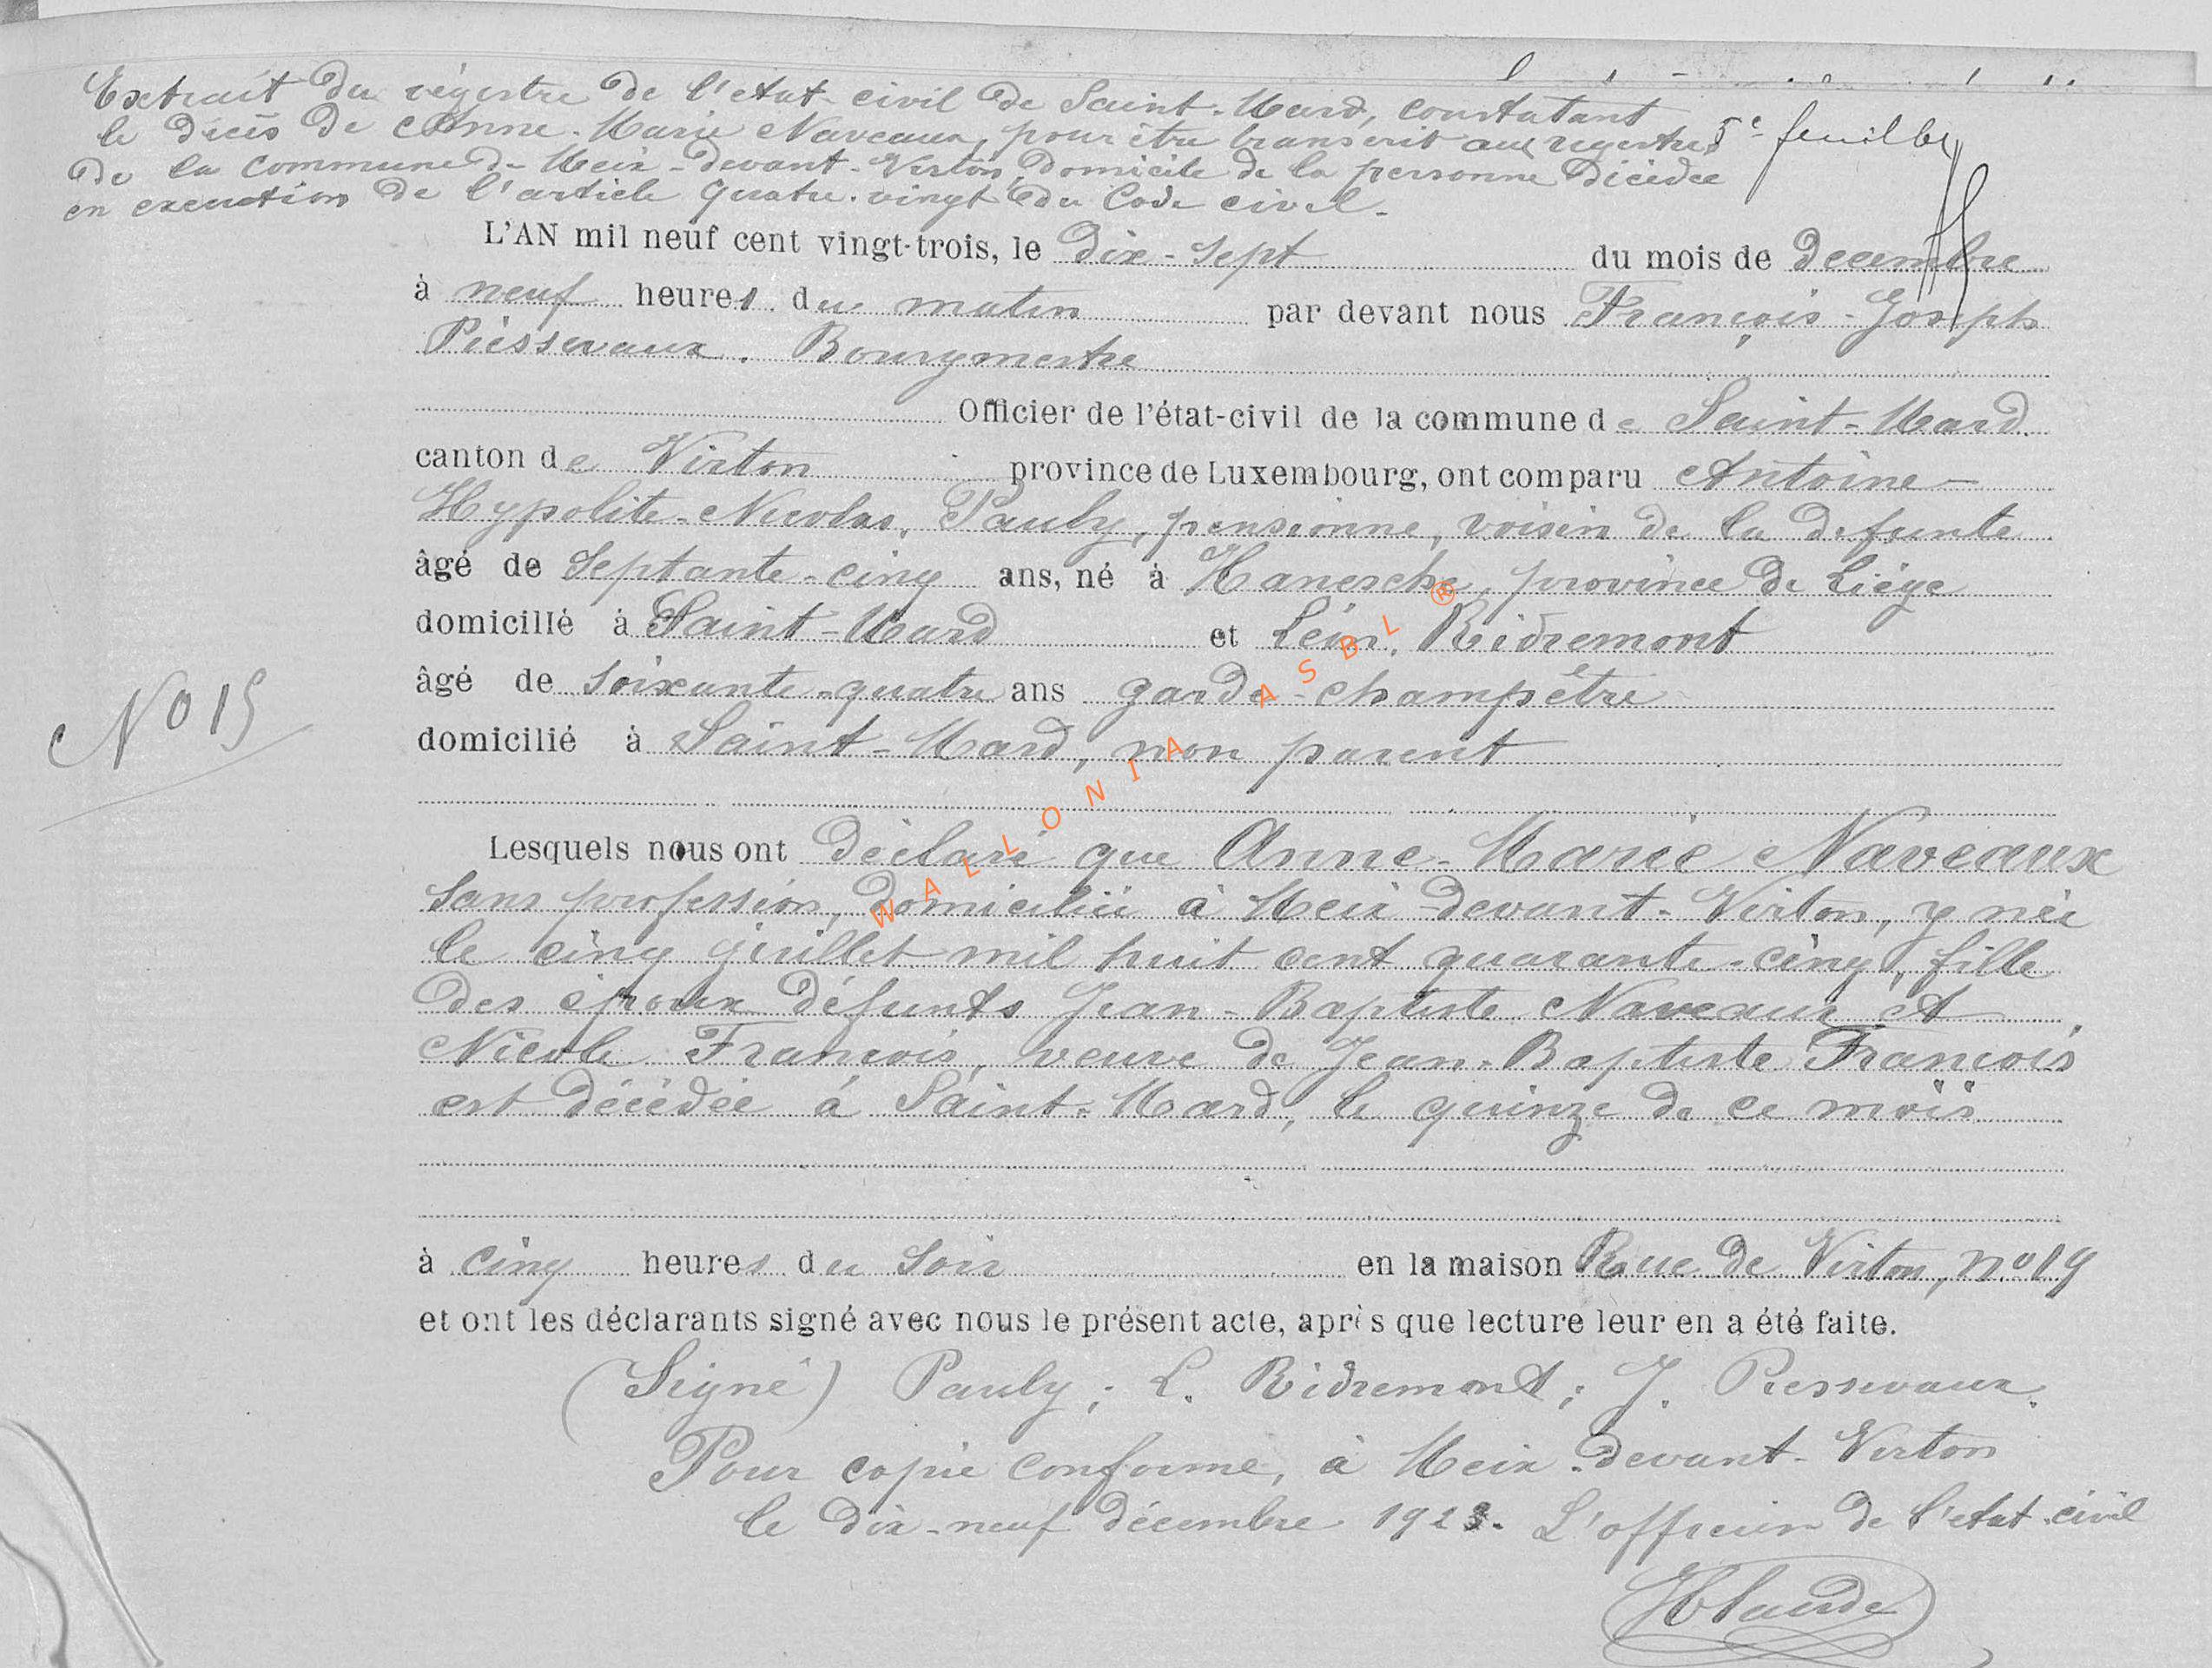 Extrait du régistre de l'etat civil de Saint-Mard, constatant
le décès de Anne-Marie Naveaux, pour être transcrit aux registres
de la commune de Meix-devant-Virton, domicile de la personne décédée
en execution de l'article quatre-vingt du Code civil.
5e feuillet
L'AN mil neuf cent vingt-trois, le dix-sept du mois de décembre
à neuf heures du matin par devant nous François-Joseph
Pièssevaux, Bourgmestre
Officier de l'état-civil de la commune de Saint-Mard
canton de Virton province de Luxembourg, ont comparu Antoine-
Hypolite-Nicolas, Pauly, pensionné, voisin de la defunte
âgé de septante-cinq ans, né à Hanesche, province de Liége
domicilié à Saint-Mard et Léon, Ridremont
âgé de soixante-quatre ans garde-champêtre
domicilié à Saint-Mard, non parent
No 15
Lesquels nous ont déclaré que Anne-Marie Naveaux
sans profession, domiciliée à Meix-devant-Virton, y née
le cinq juillet mil huit cent quarante-cinq, fille
des époux défunts Jean-Baptiste Naveaux et
Nicole François, veuve de Jean-Baptiste François
est décédée à Saint-Mard, le quinze de ce mois
à cinq heures du soir en la maison Rue de Virton, no 19
et ont les déclarants signé avec nous le présent acte, après que lecture leur en a été faite.
(Signé) Pauly; L. Ridremont; J. Piessevaux.
Pour copie conforme, à Meix-devant-Virton
le dix-neuf décembre 1923. L'officier de l'etat-civil
WALLONIA ASBL ®